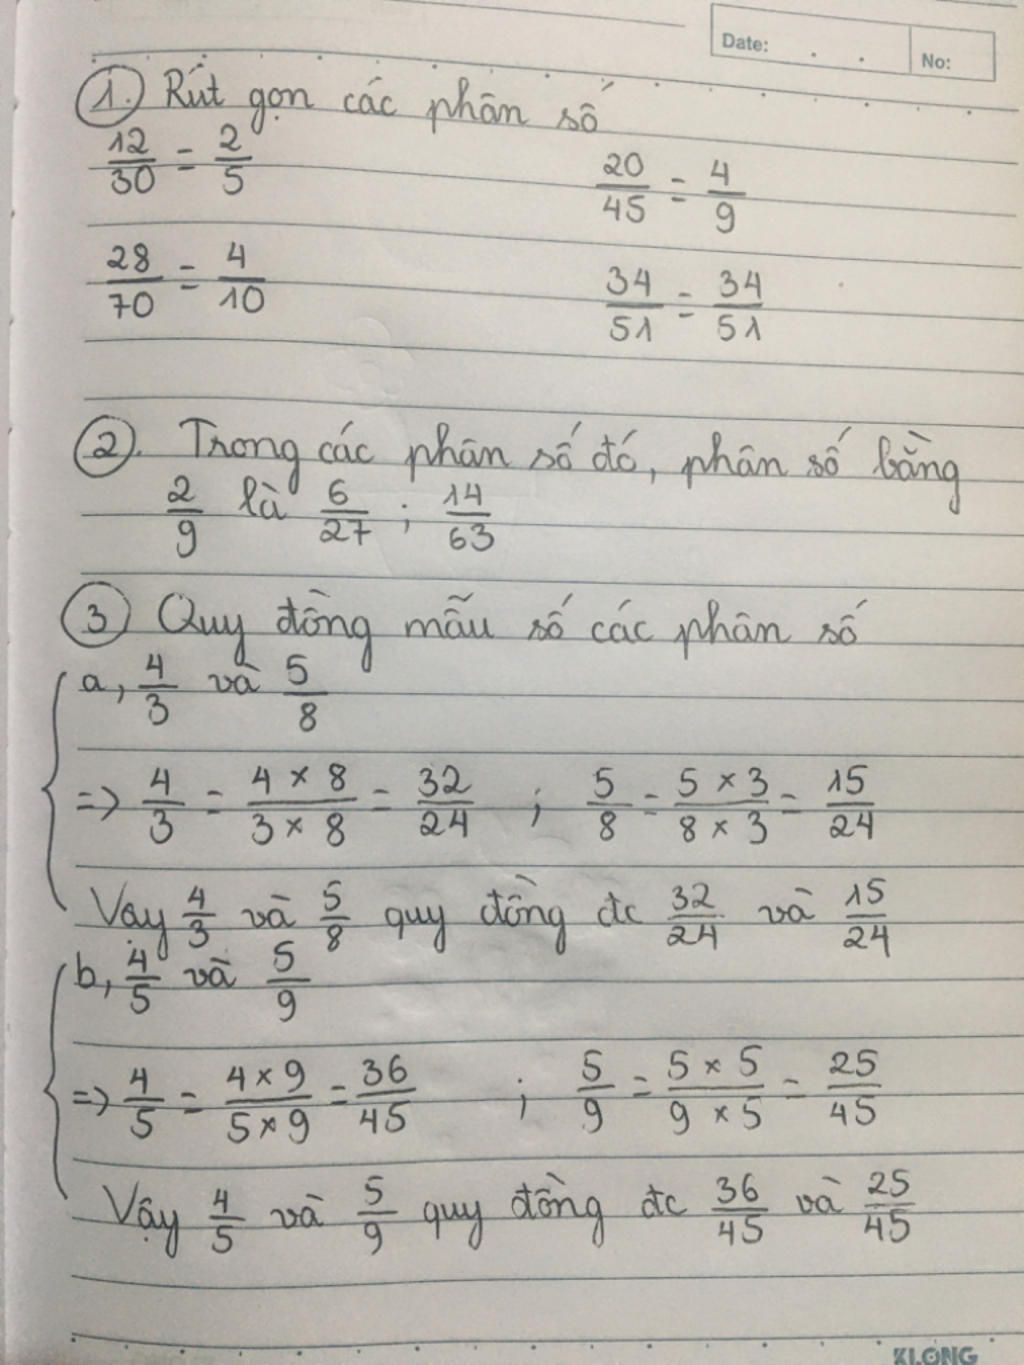 Date: . . No:
1. Rút gọn các phân số
12/30 = 2/5 20/45 = 4/9
28/70 = 4/10 34/51 = 34/51
2. Trong các phân số đó, phân số bằng
2/9 là 6/27 ; 14/63
3 Quy đồng mẫu số các phân số
a, 4/3 và 5/8
=> 4/3 = 4 × 8/3 × 8 = 32/24 ; 5/8 = 5 × 3/8 × 3 = 15/24
Vậy 4/3 và 5/8 quy đồng đc 32/24 và 15/24
b, 4/5 và 5/9
=> 4/5 = 4 × 9/5 × 9 = 36/45 ; 5/9 = 5 × 5/9 × 5 = 25/45
Vậy 4/5 và 5/9 quy đồng đc 36/45 và 25/45
KLONG